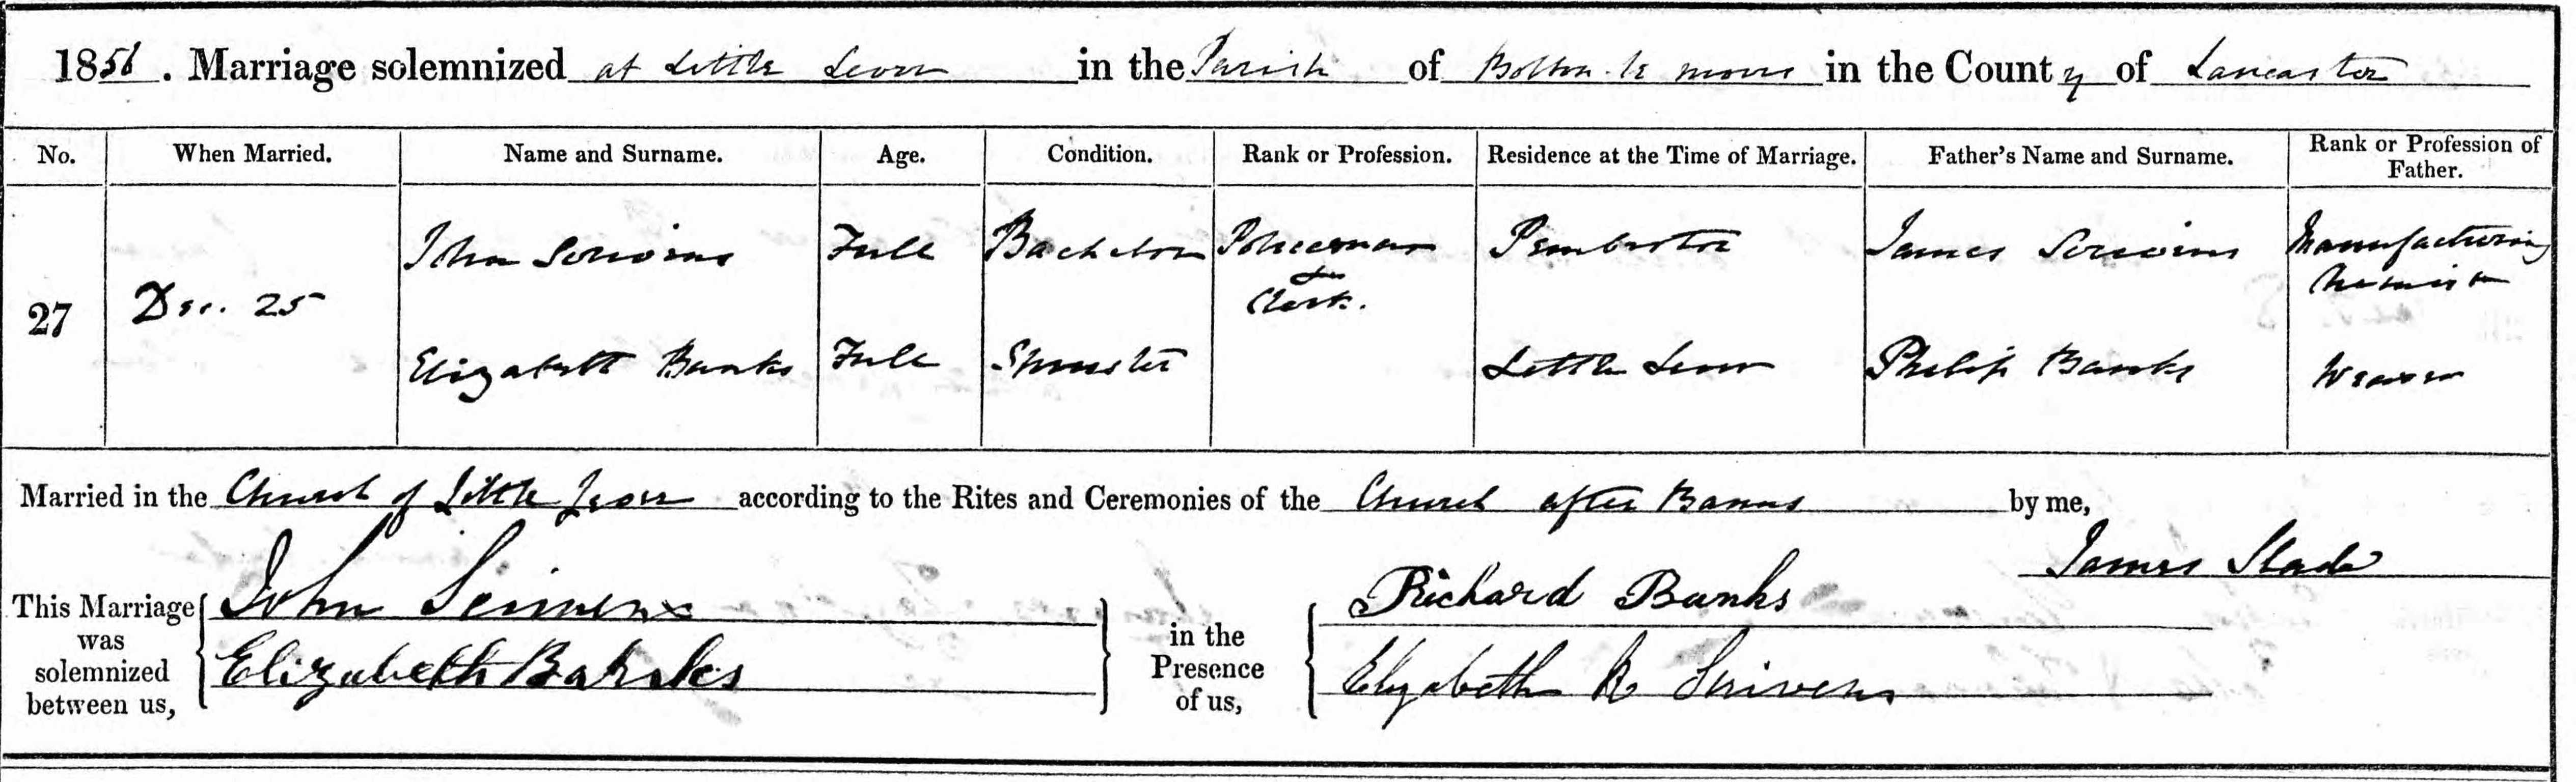 1856. Marriage solemnized at Little Lever in the Parish of Bolton le moors in the County of Lancaster
No. When Married. Name and Surname. Age. Condition. Rank or Profession. Residence at the Time of Marriage. Father's Name and Surname. Rank or Profession of Father.
27 Dec. 25
John Scrivens Full Bachelor Policeman & Clerk. Pemberton James Scrivens Manufacturing Chemist
Elizabeth Banks Full Spinster Little Lever Philip Banks Weaver
Married in the Church of Little Lever according to the Rites and Ceremonies of the Church after Banns by me,
James Slade
This Marriage was solemnized between us, John Scrivens
Elizabeth Banks
in the Presence of us, Richard Banks
Elizabeth R Scrivens